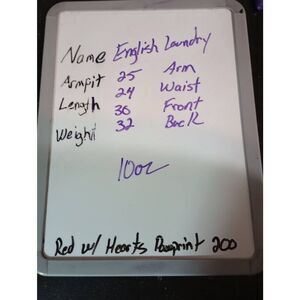 Name English Laundry
Armpit 25 Arm
Length 24 Waist
36 Front
Weight 32 Back
10oz
Red w/ Hearts Pawprint 200